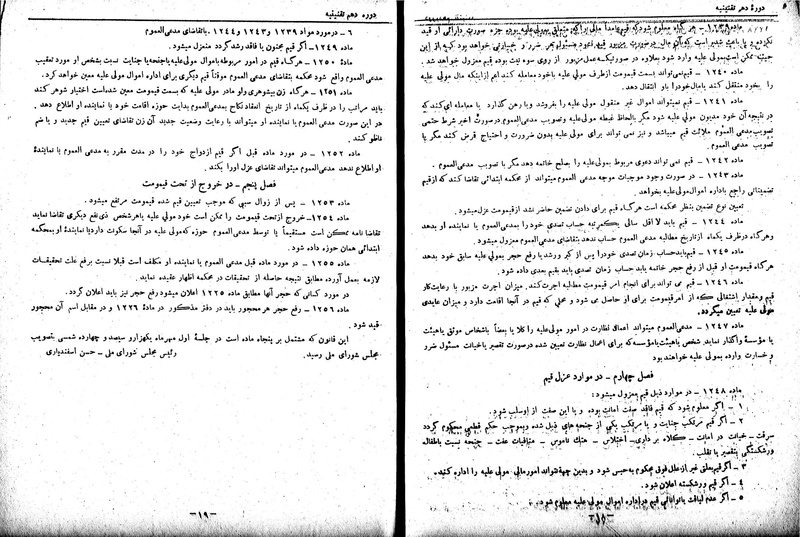 دورهٔ دهم تقنینیه
ماده ۱۲۳۹ – هر گاه معلوم شود که قیم عامداً مالی را که متعلق بمولی‌علیه بوده جزء صورت دارائی او قید
نکرده و یا باعث شده است که آن مال در صورت مزبور قید نشود مسئول هر ضرر و خساراتی خواهد بود که از این
حیث ممکن است بمولی علیه وارد شود بعلاوه در صورتیکه عمل مزبور از روی سوء نیت بوده قیم معزول خواهد شد.
ماده ۱۲۴۰ – قیم نمی‌تواند بسمت قیمومت از طرف مولی علیه باخود معامله کند اعم از اینکه مال مولی علیه
را بخود منتقل کند یا مال خود را باو انتقال دهد.
ماده ۱۲۴۱ – قیم نمیتواند اموال غیر منقول مولی علیه را بفروشد و یا رهن گذارد یا معامله‌ای کند که
در نتیجه آن خود مدیون مولی علیه شود مگر بالحاظ غبطه مولی‌علیه و تصویب مدعی‌العموم در صورت اخیر شرط حتمی
تصویب مدعی‌العموم ملائت قیم میباشد و نیز نمی تواند برای مولی علیه بدون ضرورت و احتیاج قرض کند مگر با
تصویب مدعی العموم.
ماده ۱۲۴۲ – قیم نمی تواند دعوی مربوط بمولی‌علیه را بصلح خاتمه دهد مگر با تصویب مدعی‌العموم.
ماده ۱۲۴۳ – در صورت وجود موجبات موجه مدعی العموم میتواند از محکمه ابتدائی تقاضا کند که از قیم
تضمیناتی راجع باداره اموال مولی‌علیه بخواهد.
تعیین نوع تضمین بنظر محکمه است هر گاه قیم برای دادن تضمین حاضر نشد از قیمومت عزل میشود.
ماده ۱۲۴۴ – قیم باید لااقل سالی یکمرتبه حساب تصدی خود را بمدعی‌العموم یا نماینده او بدهد
و هر گاه در ظرف یکماه از تاریخ مطالبه مدعی العموم حساب ندهد بتقاضای مدعی‌العموم معزول میشود.
ماده ۱۲۴۵ – قیم باید حساب زمان تصدی خود را پس از کبر و رشد یا رفع حجر بمولی‌علیه سابق خود بدهد
هر گاه قیمومت او قبل از رفع حجر خاتمه یابد حساب زمان تصدی باید بقیم بعدی داده شود.
ماده ۱۲۴۶ – قیم می تواند برای انجام امر قیمومت مطالبه اجرت کند. میزان اجرت مزبور با رعایت کار
قیم و مقدار اشتغالی که از امر قیمومت برای او حاصل می شود و محلی که قیم در آنجا اقامت دارد و میزان عایدی
مولی علیه تعیین میگردد.
ماده ۱۲۴۷ – مدعی‌العموم میتواند اعمال نظارت در امور مولی‌علیه را کلا یا بعضاً باشخاص موثق یا هیئت
یا مؤسسهٔ واگذار نماید. شخص یا هیئت یا مؤسسه که برای اعمال نظارت تعیین شده در صورت تقصیر یا خیانت مسئول ضرر
و خسارت وارده بمولی علیه خواهند بود
فصل چهارم – در موارد عزل قیم
ماده ۱۲۴۸ – در موارد ذیل قیم معزول میشود:
۱ – اگر معلوم شود که قیم فاقد صفت امانت بوده و یا این صفت از او سلب شود.
۲ – اگر قیم مرتکب جنایت و یا مرتکب یکی از جنحه های ذیل شده و بموجب حکم قطعی محکوم گردد
سرقت – خیانت در امانت – کلاه برداری – اختلاس – هتك ناموس – منافیات عفت – جنحه نسبت باطفال
ورشکستگی بتقصیر یا تقلب.
۳ – اگر قیم بعلتی غیر از علل فوق محکوم بحبس شود و بدین جهة نتواند امور مالی مولی علیه را اداره کند.
۴ – اگر قیم ورشکسته اعلان شود.
۵ – اگر عدم لیاقت یا توانائی قیم در اداره اموال مولی علیه معلوم شود.
–۱۸–
دوره دهم تقنینیه
۶ – در مورد مواد ۱۲۳۹ و ۱۲۴۳ و ۱۲۴۴ بتقاضای مدعی‌العموم
ماده ۱۲۴۹ – اگر قیم مجنون یا فاقد رشد گردد منعزل میشود.
مادهٔ ۱۲۵۰ – هر گاه قیم در امور مربوطه باموال مولی‌علیه یا جنحه یا جنایت نسبت بشخص او مورد تعقیب
مدعی العموم واقع شود محکمه بتقاضای مدعی العموم موقتاً قیم دیگری برای اداره اموال مولی علیه معین خواهد کرد.
ماده ۱۲۵۱ – هر گاه زن بیشوهری ولو مادر مولی علیه که بسمت قیمومت معین شده است اختیار شوهر کند
باید مراتب را در ظرف یکماه از تاریخ انعقاد نکاح بمدعی‌العموم بدایت حوزه اقامت خود یا نماینده او اطلاع دهد.
در این صورت مدعی العموم یا نماینده او میتواند با رعایت وضعیت جدید آن زن تقاضای تعیین قیم جدید و یا ضم
ناظر کنند.
ماده ۱۲۵۲ – در مورد ماده قبل اگر قیم ازدواج خود را در مدت مقرر به مدعی العموم یا نمایندهٔ
او اطلاع ندهد مدعی‌العموم میتواند تقاضای عزل اورا بکند.
فصل پنجم – در خروج از تحت قیمومت
ماده ۱۲۵۳ – پس از زوال سببی که موجب تعیین قیم شده قیمومت مرتفع میشود.
ماده ۱۲۵۴ – خروج از تحت قیمومت را ممکن است خود مولی علیه یا هر شخص ذی‌نفع دیگری تقاضا نماید
تقاضا نامه ممکن است مستقیماً یا توسط مدعی‌العموم حوزه که مولی‌علیه در آنجا سکونت دارد یا نمایندهٔ او بمحکمه
ابتدائی همان حوزه داده شود.
ماده ۱۲۵۵ – در مورد ماده قبل مدعی‌العموم یا نماینده او مکلف است قبلا نسبت برفع علت تحقیقات
لازمه بعمل آورده مطابق نتیجه حاصله از تحقیقات در محکمه اظهار عقیده نماید.
در مورد کسانی که حجر آنها مطابق ماده ۱۲۲۵ اعلان میشود رفع حجر نیز باید اعلان گردد.
ماده ۱۲۵۶ – رفع حجر هر محجور باید در دفتر مذکور در مادهٔ ۱۲۲۶ و در مقابل اسم آن محجور
قید شود.
این قانون که مشتمل بر پنجاه ماده است در جلسهٔ اول مهرماه یکهزار و سیصد و چهارده شمسی بتصویب
مجلس شورای ملی رسید. رئیس مجلس شورای ملی – حسن اسفندیاری
–۱۹–